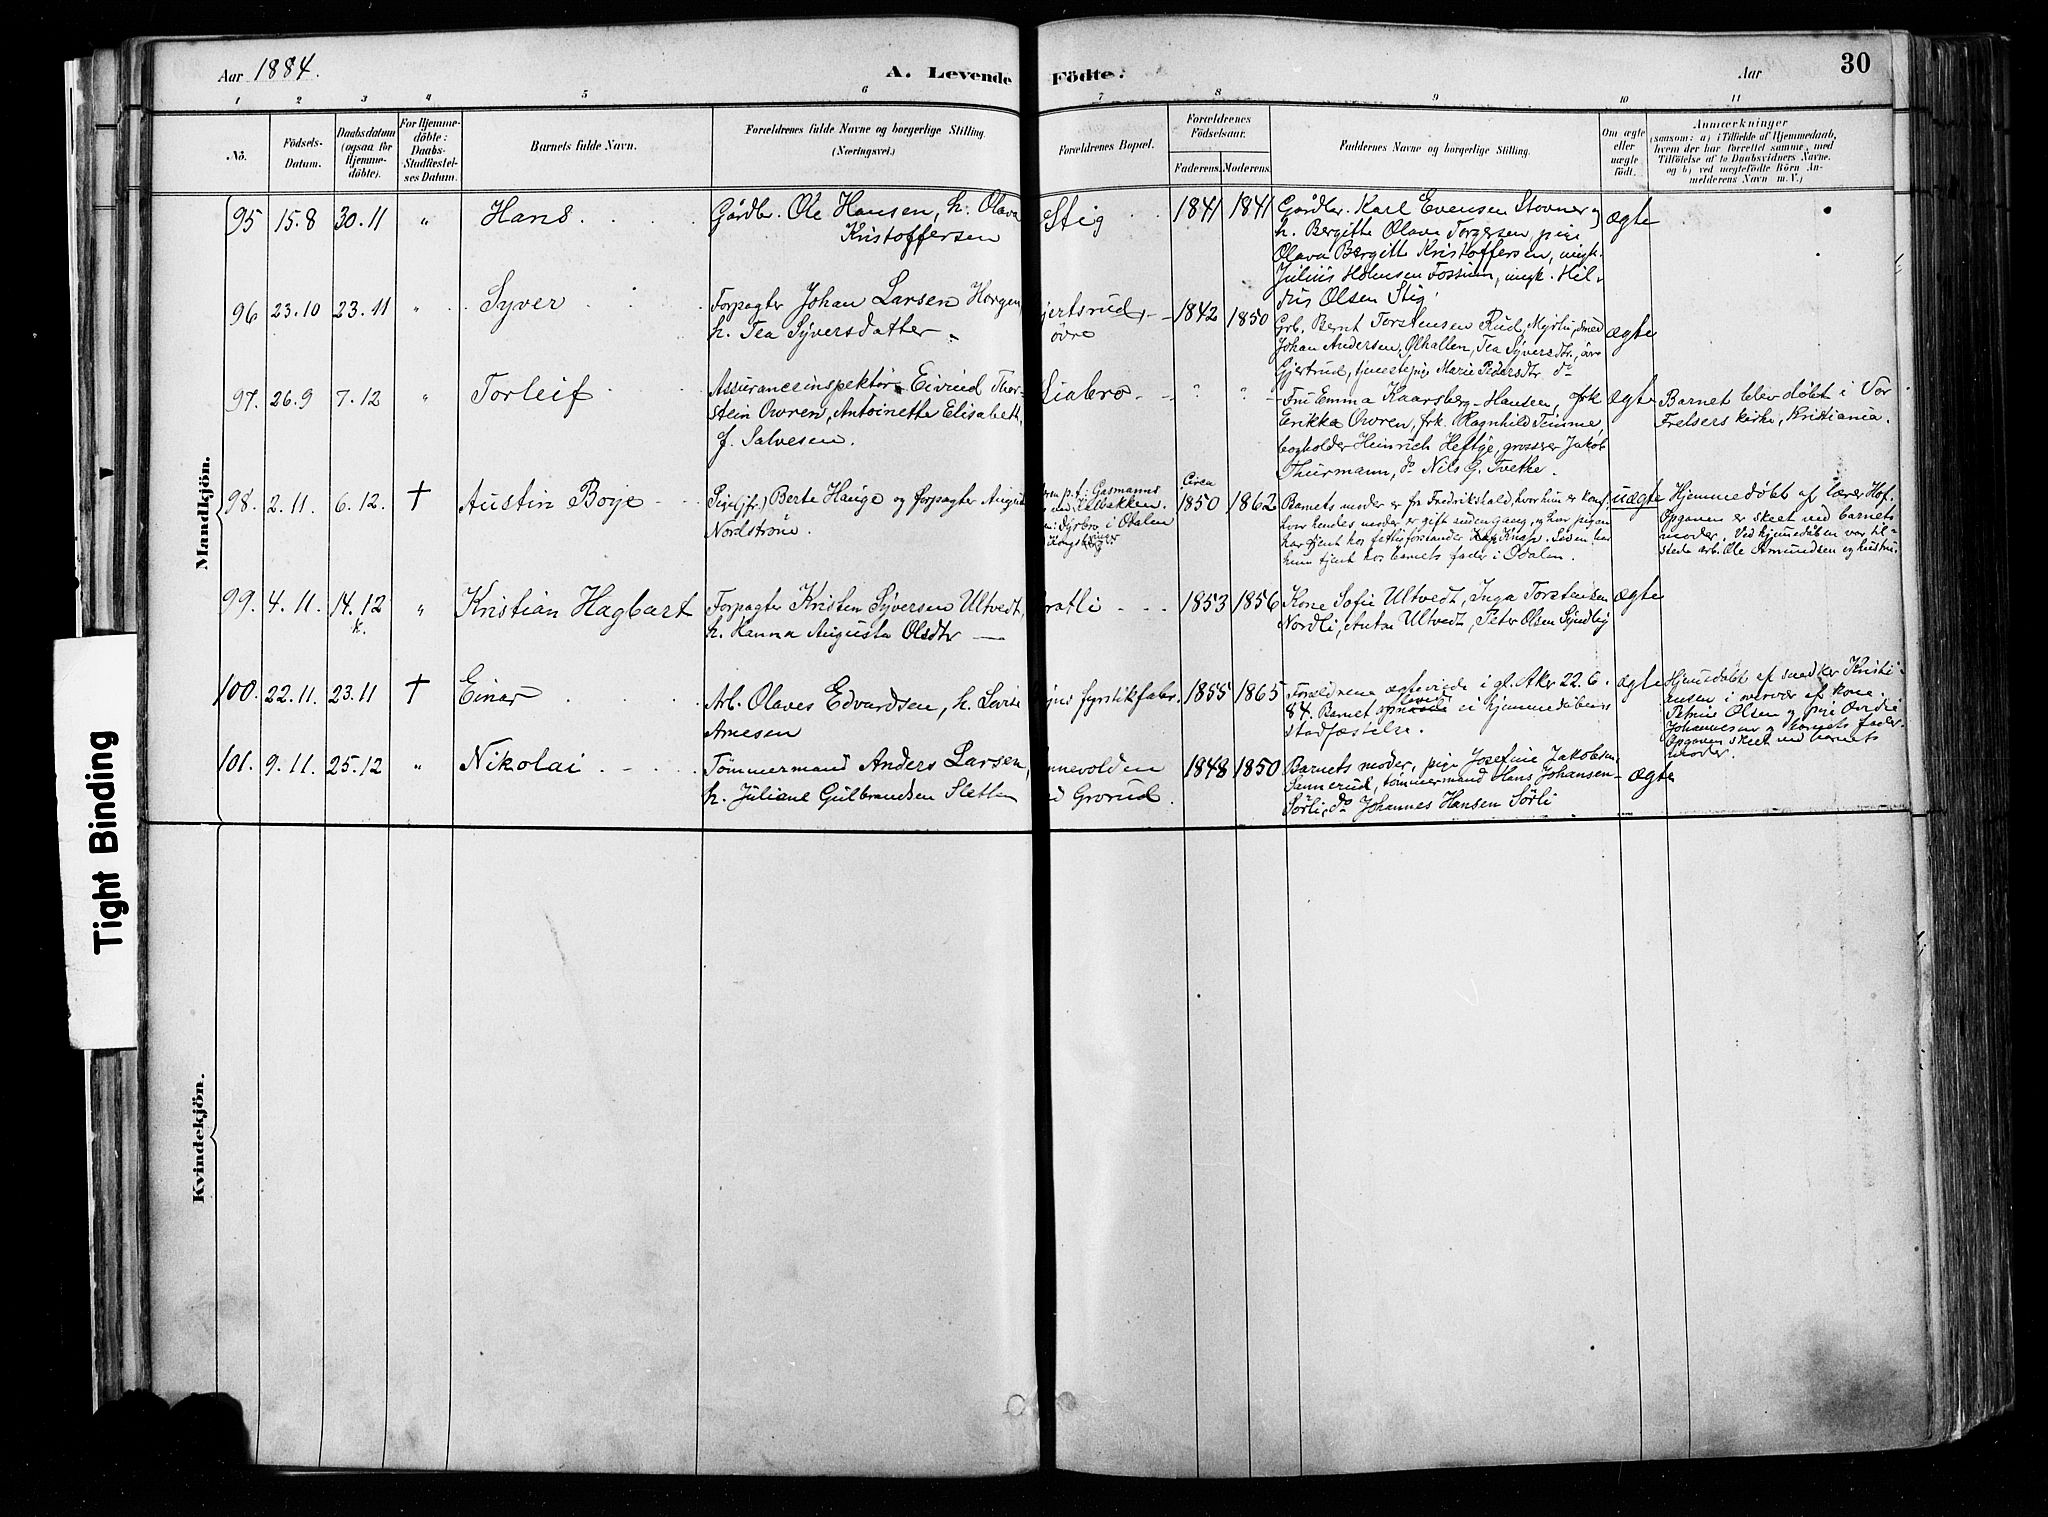 Aar 1884.
A. Levende Födte.
Aar
30
1 2 3 4 5 6 7 8 9 10 11
No.
Födsels-
Datum.
Daabsdatum
(ogsaa for
Hjemme-
döbte).
For Hjemme-
döbte:
Daabs-
Stadfæstel-
ses Datum.
Barnets fulde Navn.
Forældrenes fulde Navne og borgerlige Stilling.
(Næringsvei.)
Forældrenes Bopæl.
Forældrenes
Födselsaar.
Faderens. Moderens.
Faddernes Navne og borgerlige Stilling.
Om ægte
eller
uægte
födt.
Anmærkninger
(saasom: a) i Tilfælde af Hjemmedaab,
hvem der har forrettet samme, med
Tilföielse af to Daabsvidners Navne.
og b) ved uægtefödte Börn An-
melderens Navn m. V.)
Mandkjön.
95 15.8 30.11 " Hans
Gårdbr. Ole Hansen, h. Olava
Kristoffersen
Stig
1841 1841
Gårdbr. Karl Evensen Stovner og
h. Bergitte Olava Torgersen, pige
Olava Bergitte Kristoffersen, ungk.
Julius Holmsen Fossum, ungk. Hil-
Olsen Stig.
ægte
96 23.10 23.11 " Syver
Forpagter Johan Larsen Horgen
h. Tea Syversdatter
jertsrud,
övre
1842 1850
Grb. Bernt Torstensen Rud,
Johan Andersen, Ölhallen, Tea Syversdtr.,
Gjertrud, tjenestepige Marie Pedersdtr do
ægte
97. 26.9 7.12 " Torleif
Assuranceinspektör Eivind Thor-
stein Owren, Antoinette Elisabeth,
f. Salvesen.
Liabro
" "
Fru Emma Kaarsberg-Hansen, frk
Erikka Owren, frk. Ragnhild
bogholder Heinrich Heftye, grosserer Jakob
Thurmann, do Nils G. Tvethe.
ægte
Barnet blev döbt i Vor
Frelsers kirke, Kristiania.
98. 2.11. 6.12. † Austin Boye
Pige(jfr.) Berte Hauge og forpagter August
Nordström
p.t. Gasmanns
ved Kalbakken.
i Odalen
Circa
1850 1862
Barnets moder er fra Fredrikshald, hvor hun er konf.
hvor hendes moder er gift anden gang, og hvor pigen
har tjent hos Knap. Siden har
hun tjent hos barnets fader i Odalen.
uægte
Hjemmedöbt af lærer Hof.
Opgaven er skeet ved barnets
moder. Ved hjemmedåben var til-
stede arb. Ole Amundsen og hustru.
99. 4.11. 14.12 " Kristian Hagbart
k.
Forpagter Kristen Syversen Ultvedt,
h. Hanna Augusta Olsdtr
ratli
1853 1856
Kone Sofie Ultvedt, Inga Torstensen
Nordli, Anton Ultvedt, Peter Olsen
ægte
100. 22.11. 23.11 † Einar
Arb. Olaves Edvardsen, h. Lovise
Arnesen
fyrstikfabr.
1855 1865
Forældrene ægteviede i gl. Aker 22.6.
84. Barnet ei hjemmedåbens
stadfæstelse.
ægte
Hjemmedöbt af snedker Kristi-
ansen i nærvær af kone
Petrine Olsen og pige
Johannesen og barnets fader.
Opgaven skeet ved barnets
moder.
101. 9.11. 25.12 " Nikolai
Tömmermand Anders Larsen,
h. Juliane Gulbrandsen Sletten
nnevolden
d Grorud.
1848 1850
Barnets moder, pige Josefine Jakobsen
Sannerud, tömmermand Hans Johansen
Sörli, do Johannes Hansen Sörli
ægte
Kvindekjön.
Tight Binding